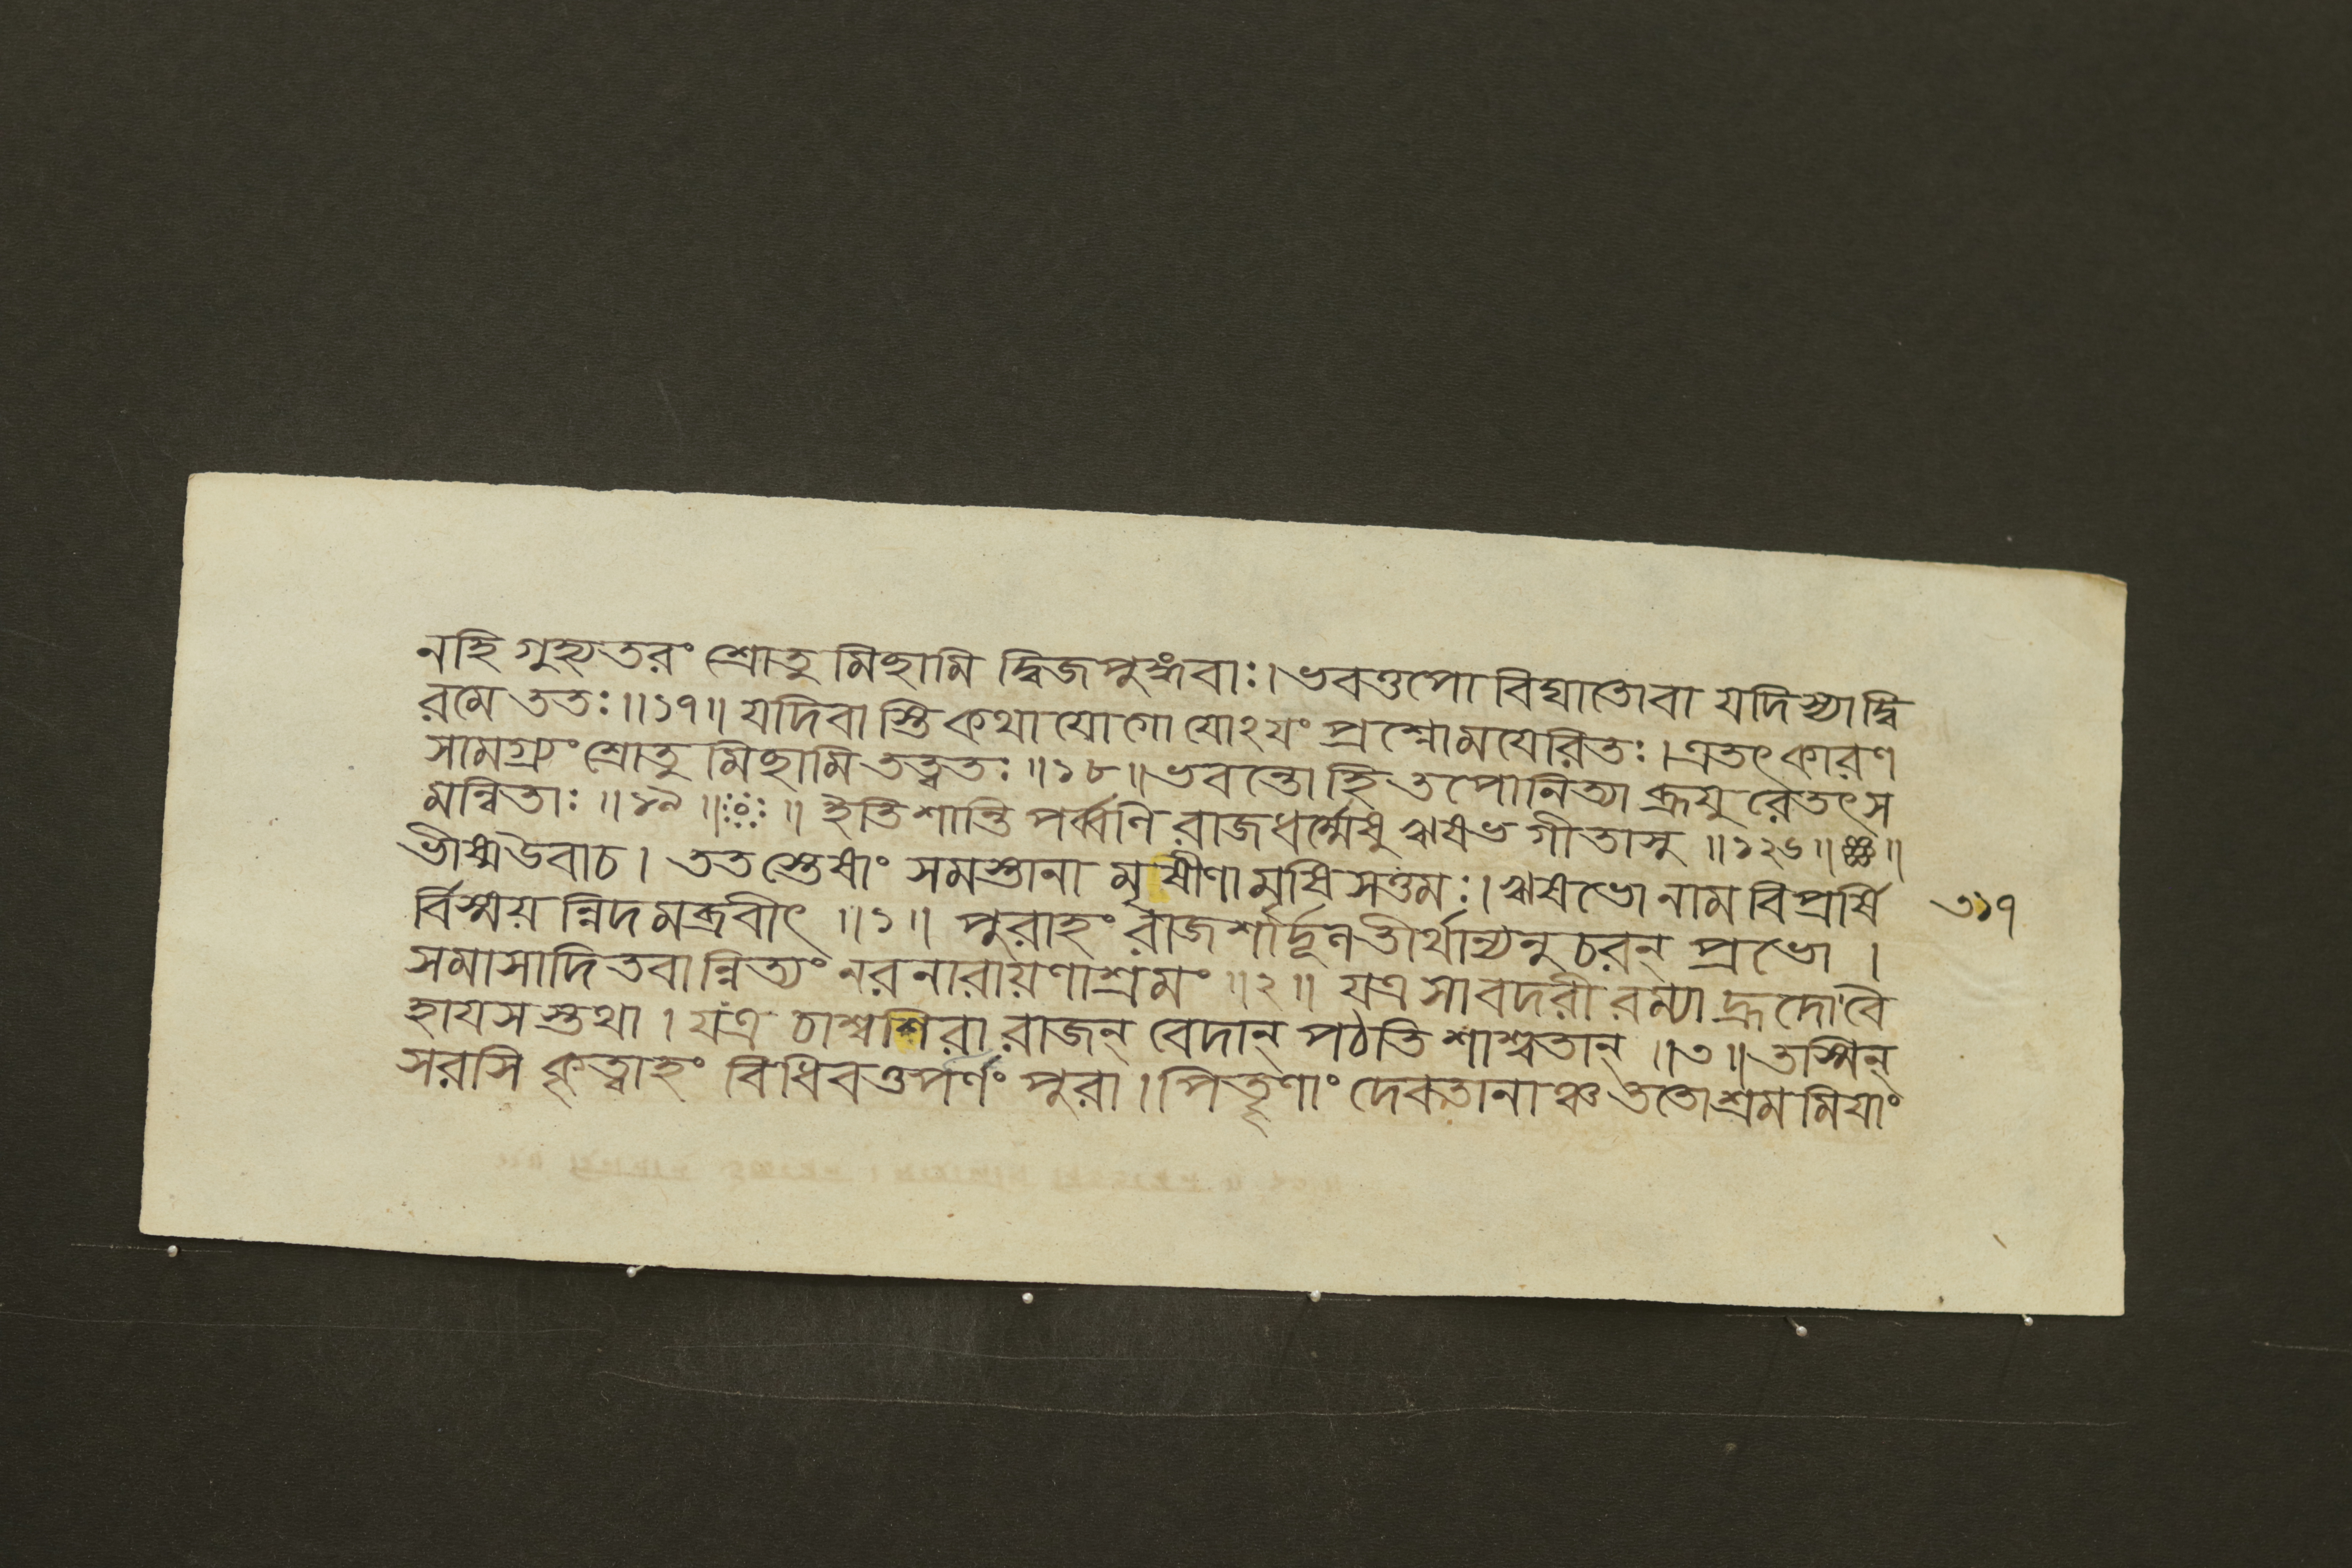 নহি গুহ্যতরং শ্রোতু মিছামি দ্বিজপুঙ্গবাঃ। ভবত্তপো বিঘাতোবা যদিস্যাদ্বি
রমে ততঃ॥১৭॥ যদিবাস্তি কথাযোগো যোঽযং প্রশ্নোমযেরিতঃ। এতৎকারণ
সামগ্র্যং শ্রোতু মিছামি তত্ত্বতঃ॥১৮॥ ভবন্তো হি তপোনিত্যা ব্রূযু রেতৎস
মন্বিতাঃ॥১৯॥ ॥ ইতি শান্তি পর্ব্বণি রাজধর্ম্মেষু ঋষভগীতাসু॥১২৬॥
ভীষ্মউবাচ। ততস্তেষাং সমস্তানা মৃষীণামৃষিসত্তমঃ। ঋষভো নাম বিপ্রর্ষি
র্বিস্ময়ন্নিদমব্রবীৎ॥১॥ পুরাহং রাজশার্দ্দূল তীর্থান্যনুচরন্ প্রভো।
৩১৭
সমাসাদিতবান্নিত্যং নরনারায়ণাশ্রমং॥২॥ যত্র সাবদরী রম্যা হ্রদোবৈ
হাযসস্তথা। যত্র চাশ্বশিরা রাজন্ বেদান্ পঠতি শাশ্বতান্॥৩॥ তস্মিন্
সরসি কৃত্বাহং বিধিবত্তর্পণং পুরা। পিতৄণাং দেবতানাঞ্চ ততোশ্রমমিযাং